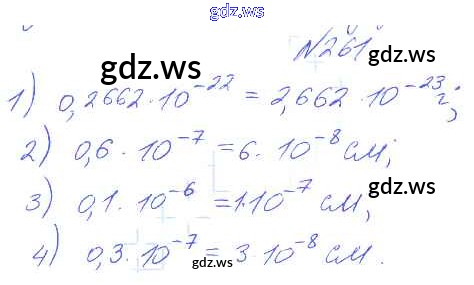 gdz.ws
№261
gdz.ws
1) 0,2662·10⁻²² = 2,662·10⁻²³ г;
2) 0,6·10⁻⁷ = 6·10⁻⁸ см;
gdz.ws
3) 0,1·10⁻⁶ = 1·10⁻⁷ см;
gdz.ws
4) 0,3·10⁻⁷ = 3·10⁻⁸ см.
gdz.ws